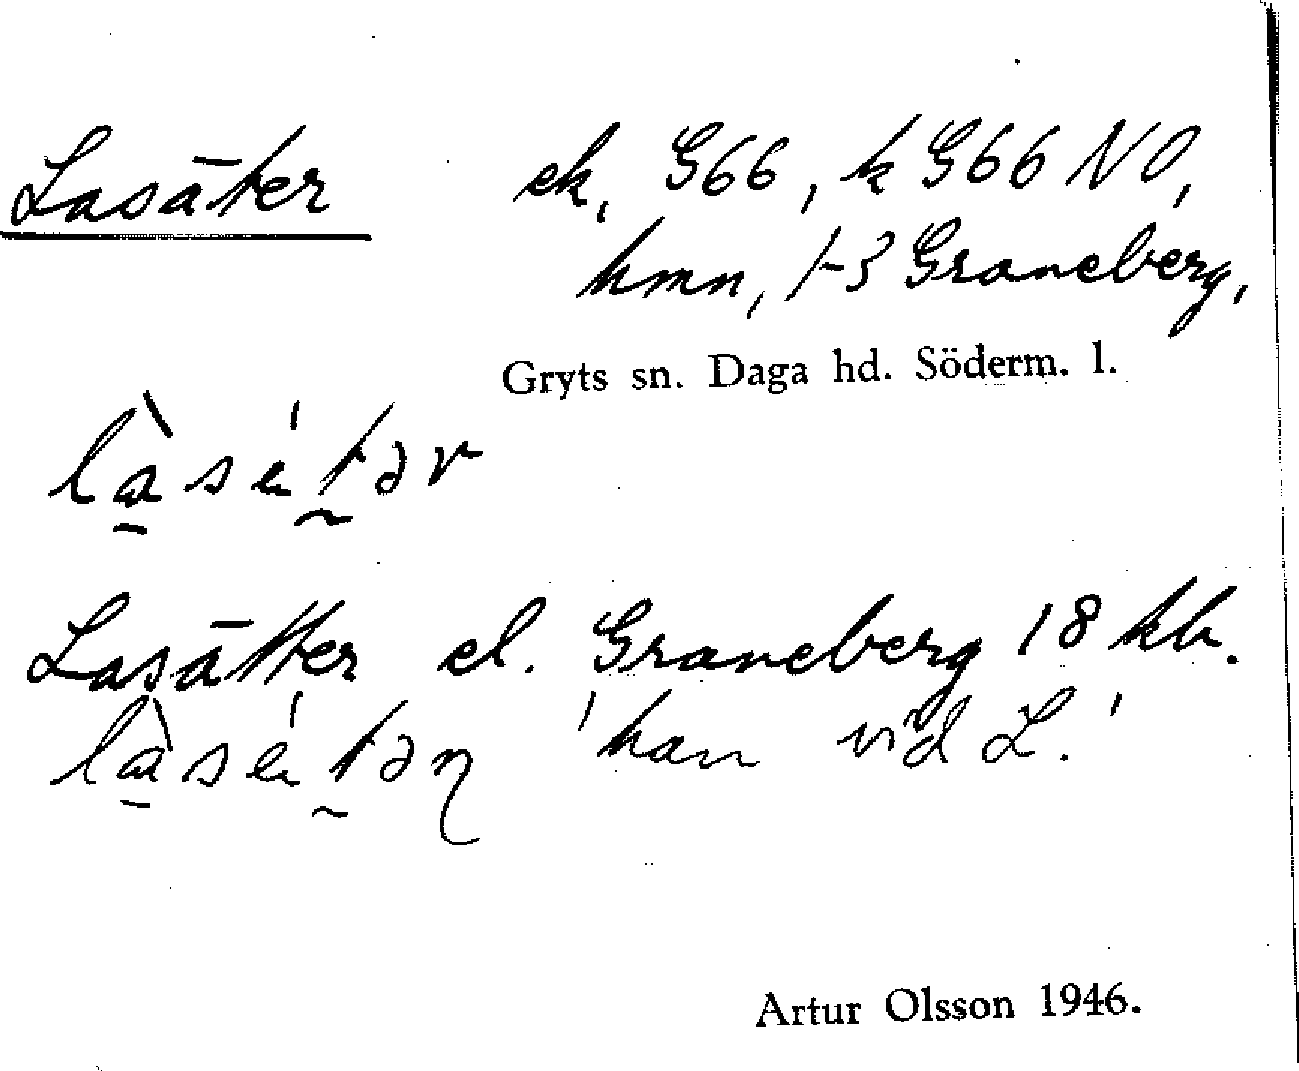 Lasäter ek, G66, k G66 NO,
hmn, 1-3 Graneberg,
Gryts sn. Daga hd. Söderm. l.
là̱sé̱tər
Lasätter el. Graneberg 18 kb.
là̱sé̱təƞ 'han vid L.'
Artur Olsson 1946.